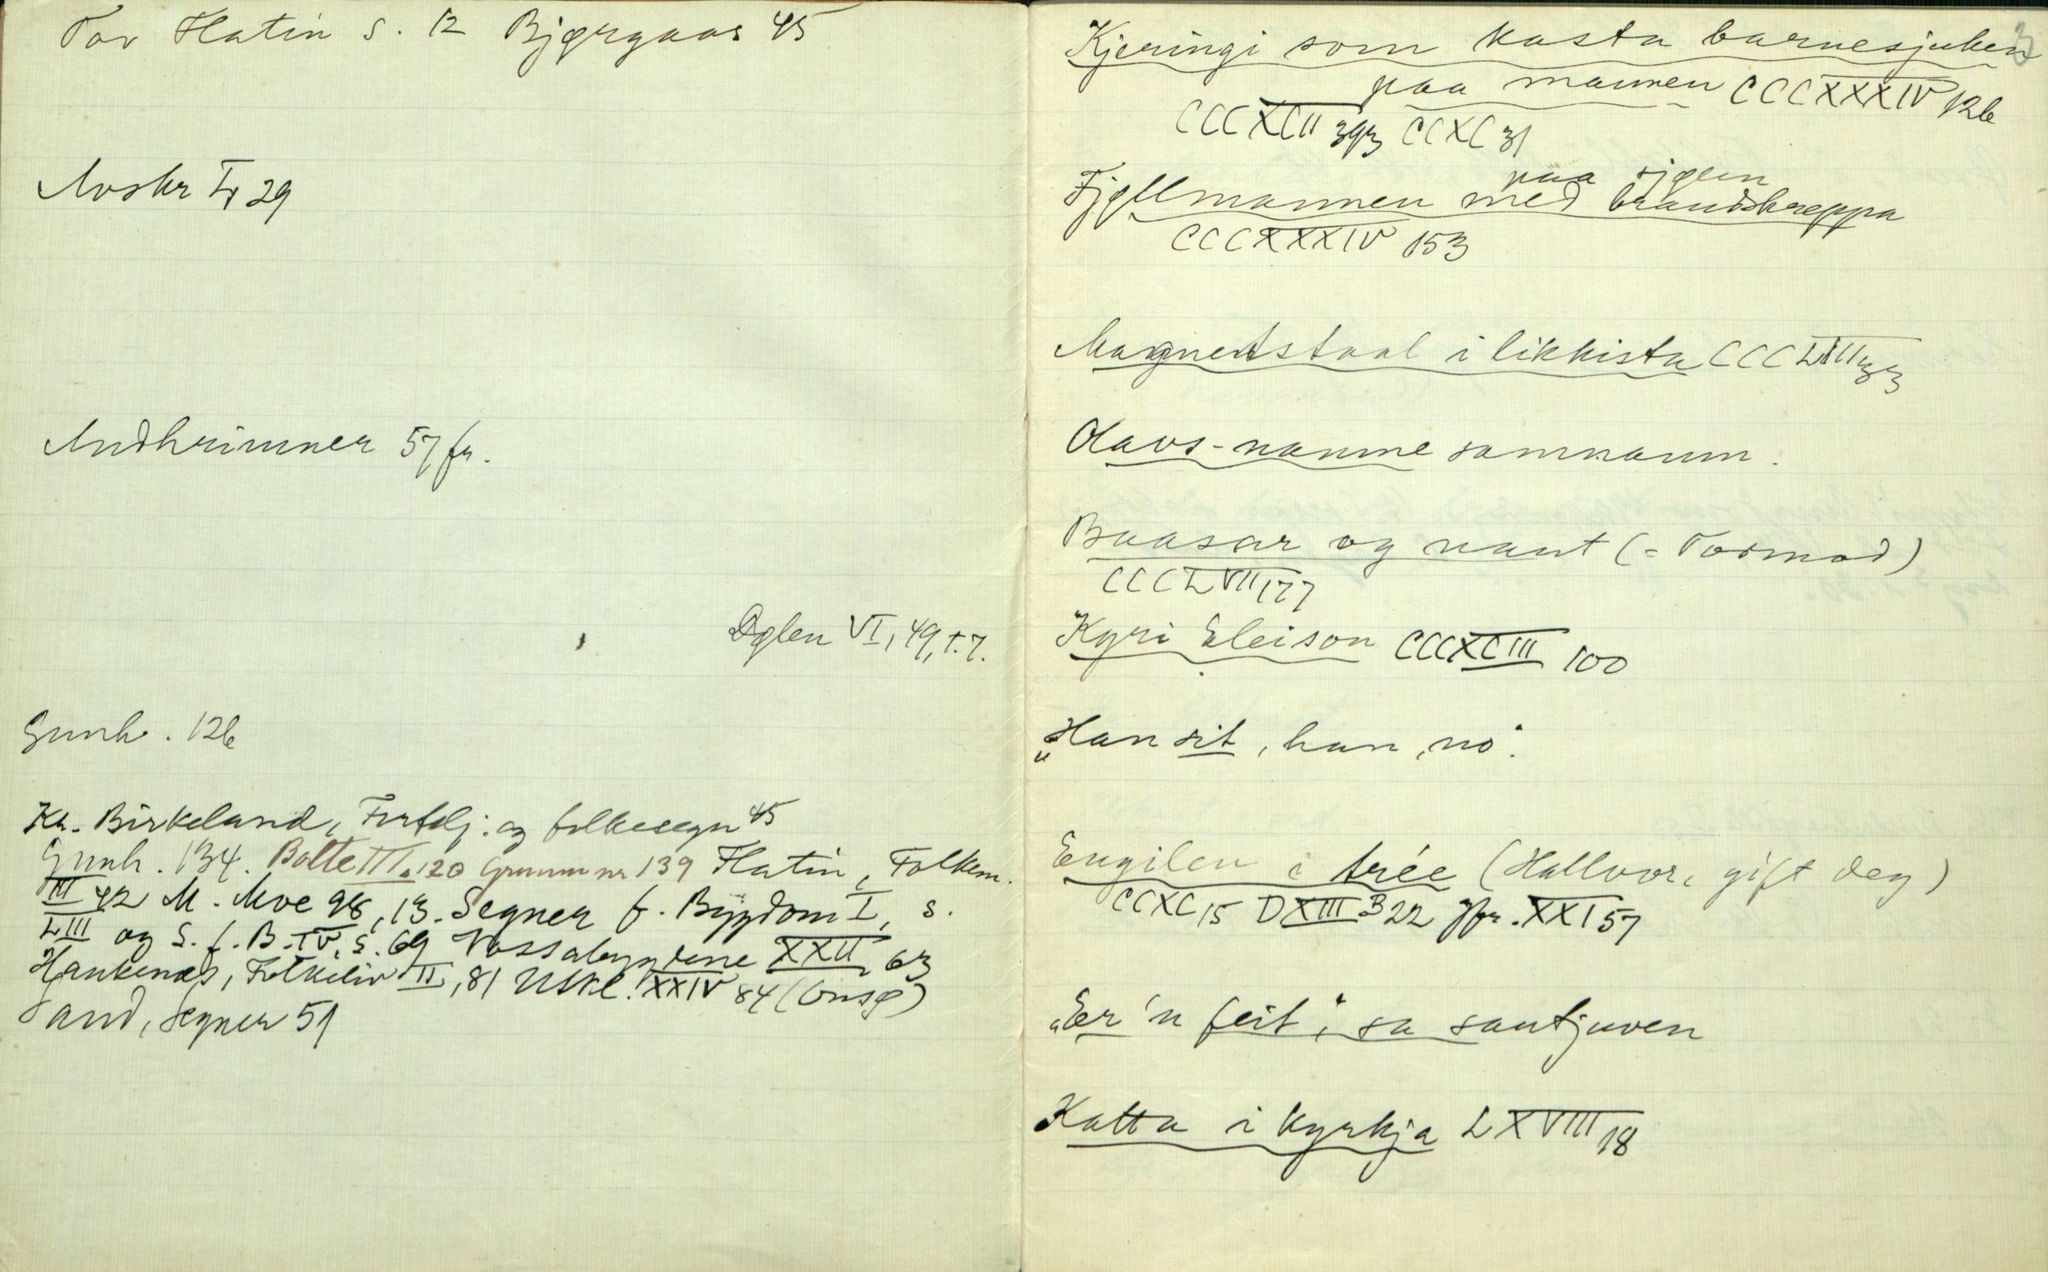 Tov Flatin s. 12 Bjørgaas 45
Moskr IV 29
Andhrimner 57 fr.
Dølen VI, 49, t. 7.
Gunh. 126
Kr. Birkeland, Fortelj. og folkesegn 45
Gunh. 134. Bolte III. 120 Grimm nr 139 Flatin, Folkem.
III 42 M. Moe 98, 13. Segner f. Bygdom I, s.
LIII og S. f. B. IV, s. 69 Vossabygdene XXII 63
Haukenæs, Folkeliv II, 81 Uskl. XXIV 84 (Onsø)
Sand, Segner 51
3
Kjeringi som kasta barnesjuken
paa mannen CCCXXXIV 126
CCCXCII 393 CCXC 31
paa rjoen
Fjellmannen med brandskreppa
CCCXXXIV 153
Magnetstaal i likkista CCCLXII 33
Olavs-namne samnamn.
Baasar og naut (= Tormod)
CCCLVII 177
Kyri Eleison CCCXCIII 100
„Han sit, han, no".
Engilen i trée (Hallvor, gift deg)
CCXC 15 DXIII B 22 jfr. XXI 57
„Er 'n feit", sa sautjuven
Katta i kyrkja LXVIII 18